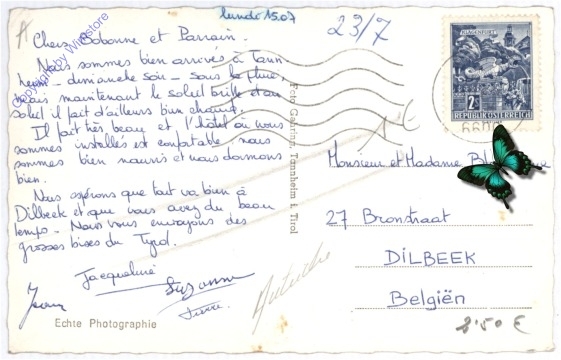 lundi 15.07
23/7
Chers Bobonne et Parrain.
Nous sommes bien arrivés à Tann
heim - dimanche soir - sous la pluie,
mais maintenant le soleil brille et au
soleil il fait d'ailleurs bien chaud.
Il fait très beau et l'hôtel où nous
sommes installés est confortable, nous
sommes bien nourris et nous dormons
bien.
Nous espérons que tout va bien à
Dilbeek et que vous avez du beau
temps. Nous vous envoyons des
grosses bises du Tyrol.
Jacqueline
Suzanne
Jean
Pierre.
Echte Photographie
Tannheim i. Tirol
KLAGENFURT
2S
REPUBLIK ÖSTERREICH
1 €
Monsieur et Madame
27 Bronstraat
DILBEEK
Belgiën
Autriche
2'50 €
Copyright by Winstore